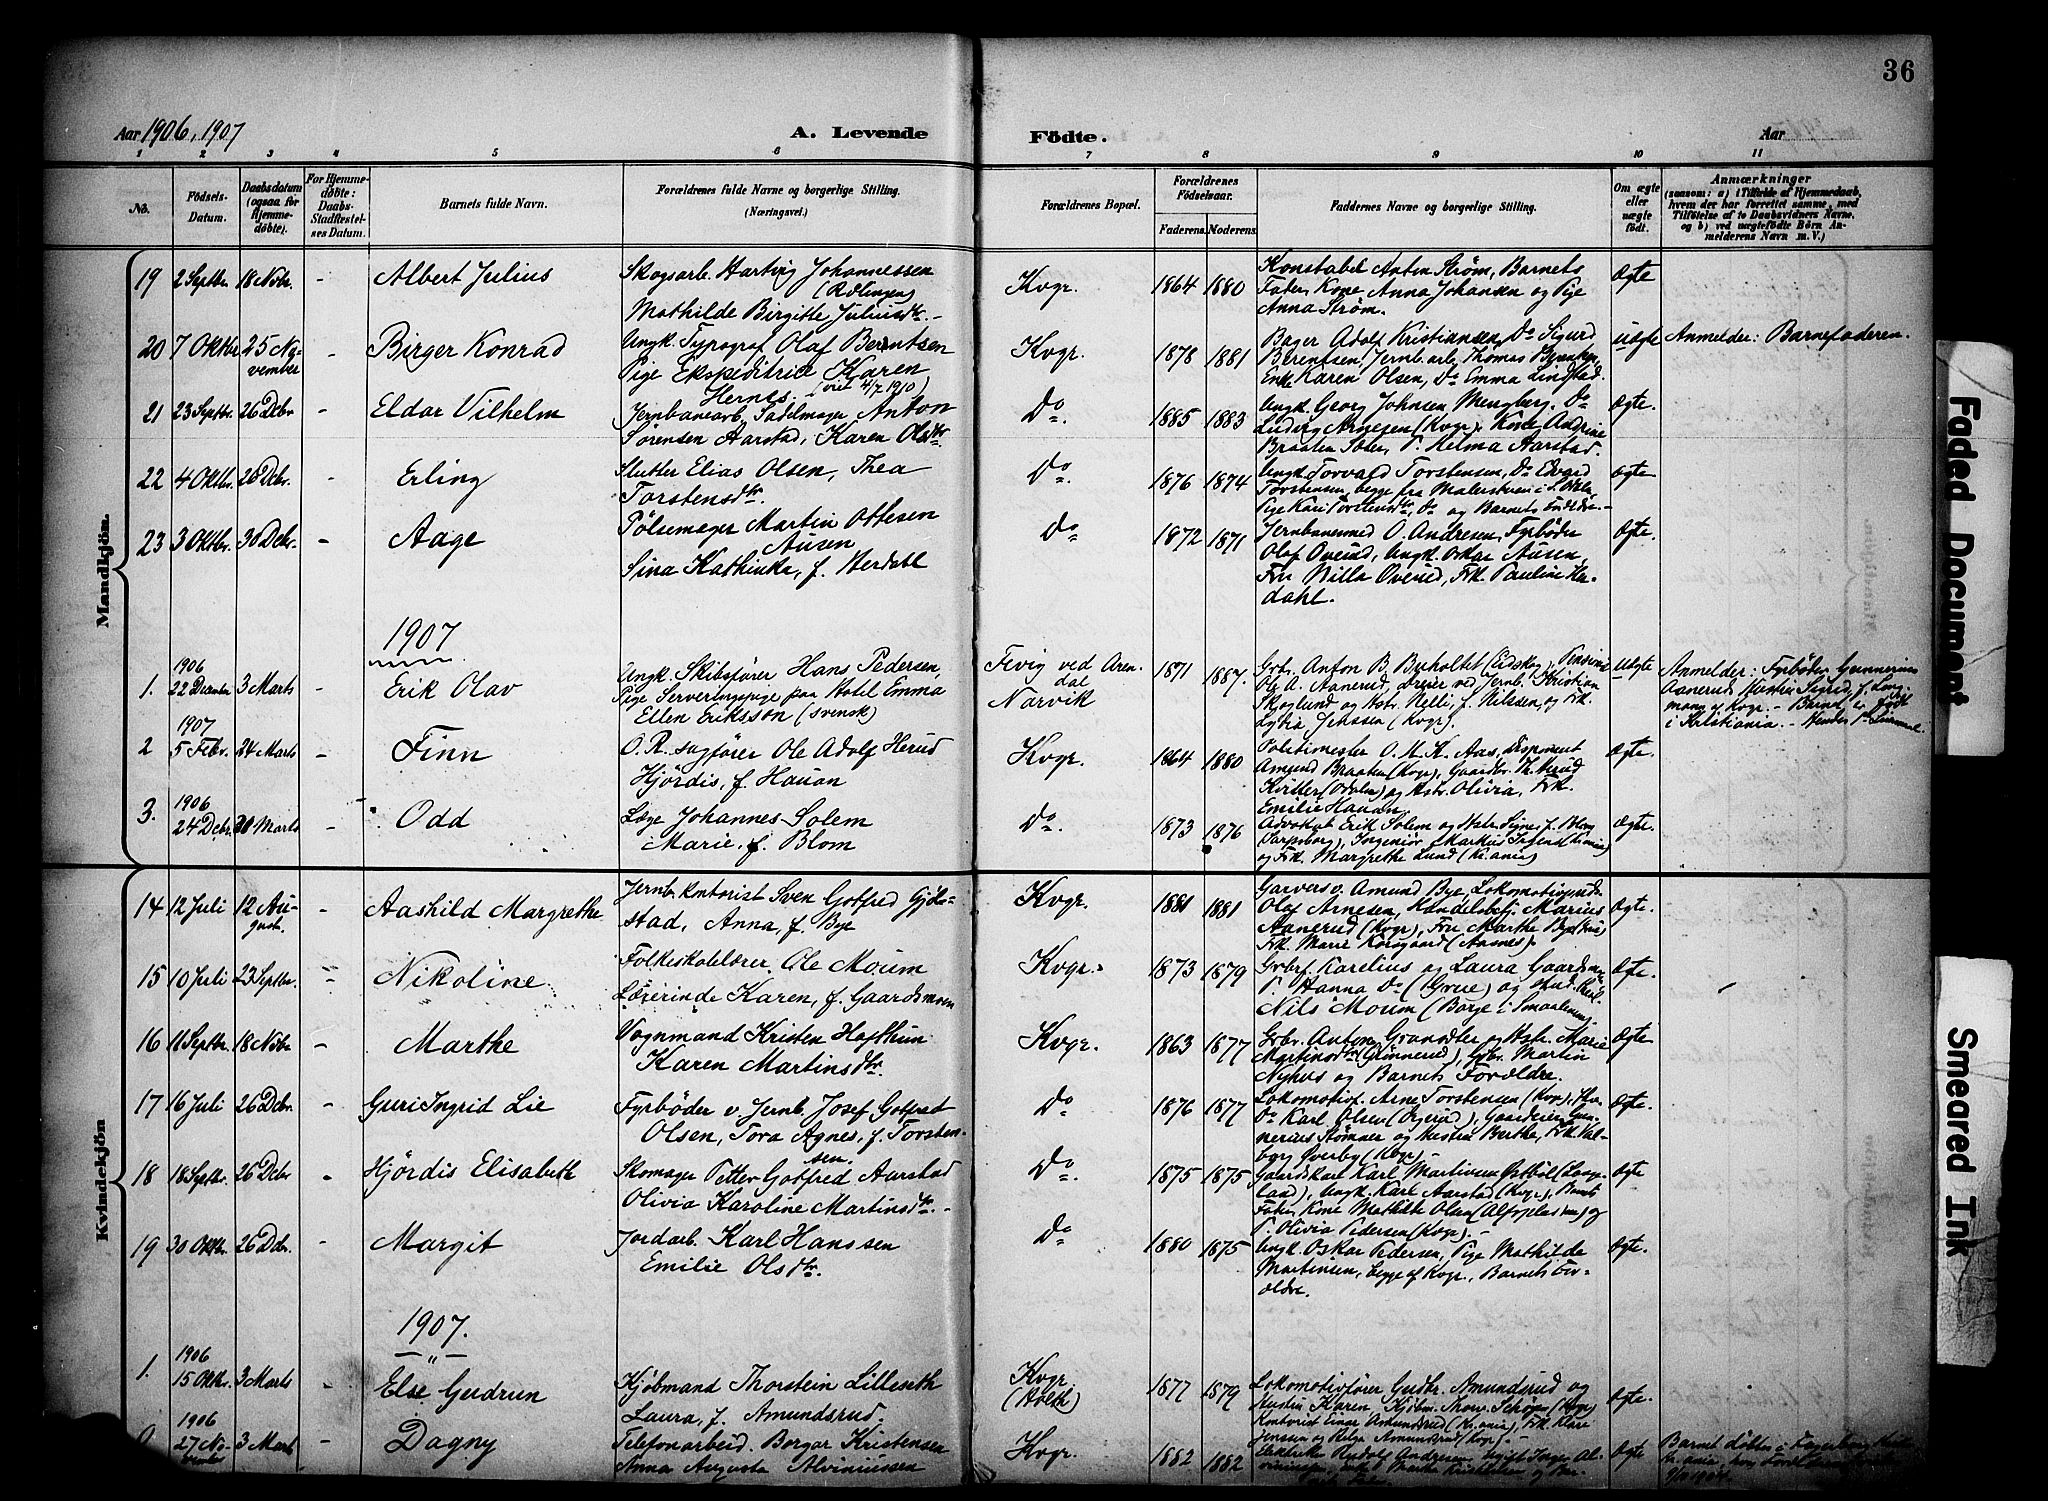 36
Aar 1906, 1907
A. Levende
Födte.
Aar
1 2 3 4 5 6 7 8 9 10 11
No.
Födsels-
Datum.
Daabsdatum
(ogsaa for
Hjemme-
döbte).
For Hjemme-
döbte:
Daabs-
Stadfestel-
ses Datum.
Barnets fulde Navn.
Forældrenes fulde Navne og borgerlige Stilling.
(Næringsvei.)
Forældrenes Bopæl.
Forældrenes
Födselsaar.
Faderens. Moderens.
Faddernes Navne og borgerlige Stilling.
Om ægte
eller
uægte
födt.
Anmærkninger
(saasom: a) i Tilfælde af Hjemmedaab,
hvem der har forrettet samme, med
Tilföielse af to Daabsvidners Navne,
og b) ved uægtefödte Börn An-
melderens Navn m. V.)
Mandkjön.
19 2 Septbr. 18 Novbr. - Albert Julius
Skogsarb. Harting Johannessen
(Rölingen)
Mathilde Birgitte Juliusdtr. -
Kvgr. 1864 1880
Konstabel Anton Ström, Barnets
Fader, Kone Anna Johansen og Pige
Anna Ström.
Ægte
20 7 Oktbr 25 No-
vember - Birger Konrad
Ungk. Typograf Olaf Berntsen
Pige Ekspeditrice Karen
Hernes. (viet 4/7 1910)
Kvgr. 1878 1881
Bager Adolf Kristiansen, Do Sigurd
Berentsen, Jernb. arb. Thomas
Enke Karen Olsen, Do Emma Lindstad.
uægte Anmelder: Barnefaderen.
21 23 Septbr. 26 Debr - Eldar Vilhelm
Jernbanearb. Sadelmager Anton
Sörensen Aarstad, Karen Olsdtr
Do. 1885 1883
Ungk. Georg Johnsen Mengberg. Do
Ludvig Arnesen (Kvgr), Kone Andrine
Braaten Solör, P. Helma Aarstad.
Ægte.
22 4 Oktbr. 26 Debr. - Erling
Slutter Elias Olsen, Thea
Torstensdtr.
Do. 1876 1874
Ungk. Torvald Torstensen, Do Edvard
Torstensen, begge fra Malerstuen i
Pige Kari Torstensdtr, Do og Barnets Forældre. -
ægte
23 3 Oktbr. 30 Debr. - Aage
Pölsemager Martin Ottesen
Ausen
Sina Kathinka, f. Herdahl
Do 1872 1871
Jernbanemed O. Andresen, Fyrböder
Olaf Overud, Ungk. Oskar Ausen,
Fru Villa Overud, Frk. Pauline Her-
dahl.
Ægte.
1907
1906
1. 22 December 3 Marts - Erik Olav
Ungk. Skibsförer Hans Pedersen,
Pige Serveringspige paa Hotel Emma
Ellen Eriksson (svensk)
Fevig ved Aren-
dal
Narvik
1871 1887.
Grbr. Anton B. Buholtet (Eidskog),
Ole A. Aanerud, Dreier ved Jernb. Kristian
Skoglund og Hstr. Nelli, f. Nilsen, og Frk.
Lydia Jenssen (Kvgr).
uægte
Anmelder: Fyrböder Gunnerius
Aanerud Hustru Sigrid, f. Lang-
mann af Kvgr. - Barnet er födt
i Kristiania. -
1907
2 5 Febr. 24 Marts - Finn
O. R. sagförer Ole Adolf Herud
Hjördis, f. Hauan
Kvgr. 1864 1880
Politimester O. M. K. Aas, Disponent
Amund Braaten (Kvgr), Gaardbr. Th. Herud
Kvitter (Odalen) og Hstr. Olivia, Frk.
Emilie Hauan
Ægte.
1906
3. 24 Debr. 28 Marts - Odd
Læge Johannes Solem
Marie, f. Blom
Do. 1873 1876
Advokat Erik Solem og Hstr. Signe, f. Blom
Sarpsborg), Ingeniör Markus
og Frk. Margrethe Lund (Kr.ania)
Ægte.
Kvindekjön
14 12 Juli 12 Au-
gust. - Aashild Margrethe
Jernb. kontorist Sven Gotfred Gjöl-
stad, Anna, f. Bye
Kvgr. 1881 1881
Garvers v. Amund Bye, Lokomotivpuds.
Olaf Arnesen, Handelsbetj. Marius
Aanerud (Kvgr), Fru Marthe Bye
Frk. Marie Korsgaard (Aasnes).
Ægte.
15 10 Juli 23 Septbr. - Nikoline
Folkeskolelærer. Ole Moum
Lærerinde Karen, f. Gaardsmoen
Kvgr. 1873 1879
Grbrf. Karelius og Laura Gaardsmoen
P. Hanna Do (Grue) og stud.
Nils Moum (Borge i Smaalenene)
Ægte.
16 11 Septbr. 18 Novbr - Marthe
Vognmand Kristen Hofthun
Karen Martinsdtr.
Kvgr. 1863 1877
Grbr. Anton Granodler og Hstr. Marie
Martinsdtr (Grinnerud), Grbr. Martin
Nyhus og Barnets Forældre.
Ægte
17 16 Juli 26 Debr. - Guri Ingrid Lie
Fyrböder v. Jernb. Josef Gotfred
Olsen, Tora Agnes, f. Torsten-
sen.
Do 1876 1877
Lokomotivf. Arne Torstensen (Kvgr),
Do Karl Olsen, Gaardeier Gun-
nerius Stömner og Hustru Berthe, Frk. Val-
borg Överby (Kvgr) -
Ægte.
18 18 Septbr. 26 Debr. - Hjördis Elisabeth
Skomager Petter Gotfred Aarstad
Olivia Karoline Martinsdtr. -
Do. 1875 1875
Gaardskarl Karl Martinsen Östböl
Ungk. Karl Aarstad (Kvgr), Barnets
Fader, Kone Mathilde Olsen og
P. Olivia Pedersen (Kvgr). -
Ægte
19 30 Oktbr. 26 Debr. - Margit
Jordarb. Karl Hanssen
Emilie Olsdtr.
Do 1880 1875
Ungk. Oskar Pedersen, Pige Mathilde
Martinsen, begge af Kvgr., Barnets For-
ældre.
Ægte.
1907.
1906
1. 15 Oktbr. 3 Marts - Else Gudrun
Kjöbmand Thorstein Lilleseth
Laura, f. Amundsrud.
Kvgr.
(Holth)
1877 1879
Lokomotivförer Gudbr. Amundsrud og
Hustru Karen, Kjöbm. Thorv. Schöyen (Kvgr)
Kontorist Einar Amundsrud (Kr.ania), Frk. Klara
Jenssen og Helga Amundsrud (Kvgr). -
Ægte.
1906
27 No-
vember 3 Marts - Dagny
Telefonarbeid. Borgar Kristensen
Anna Augusta Alviniussen
Kvgr. 1882 1882
Elektriker Rudolf Andresen
Ægte
Barnet döbt i Fagerborg
Faded Document
Smeared Ink